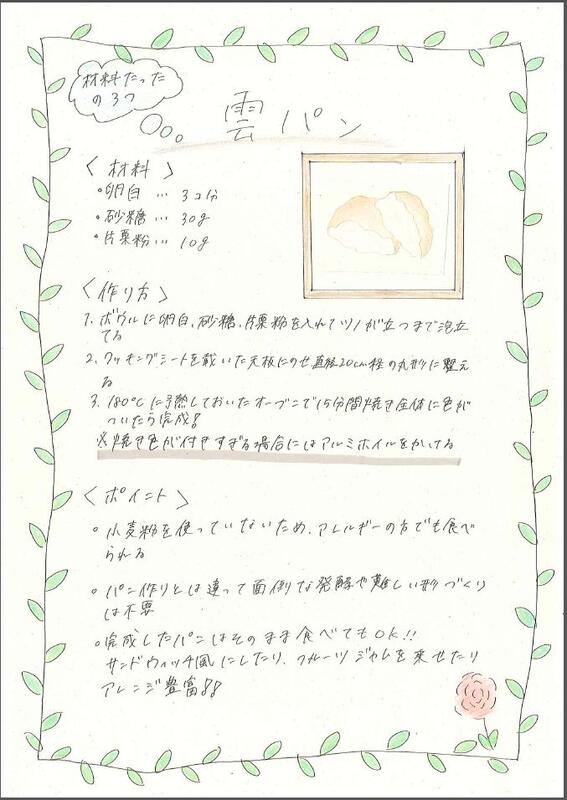 材料たった
の3つ
雲パン
〈材料〉
・卵白…3コ分
・砂糖…30g
・片栗粉…10g
〈作り方〉
1. ボウルに卵白、砂糖、片栗粉を入れてツノが立つまで泡立
てる
2. クッキングシートを敷いた天板にのせ直径20cm程の丸形に整え
る
3. 180℃に予熱しておいたオーブンで15分間焼き全体に色が
ついたら完成!
※焼き色が付きすぎる場合にはアルミホイルをかぶせる
〈ポイント〉
・小麦粉を使っていないため、アレルギーの方でも食べ
られる
・パン作りとは違って面倒な発酵や難しい形づくり
は不要
・完成したパンはそのまま食べてもOK!!
サンドウィッチ風にしたり、フルーツジャムを乗せたり
アレンジ豊富!!